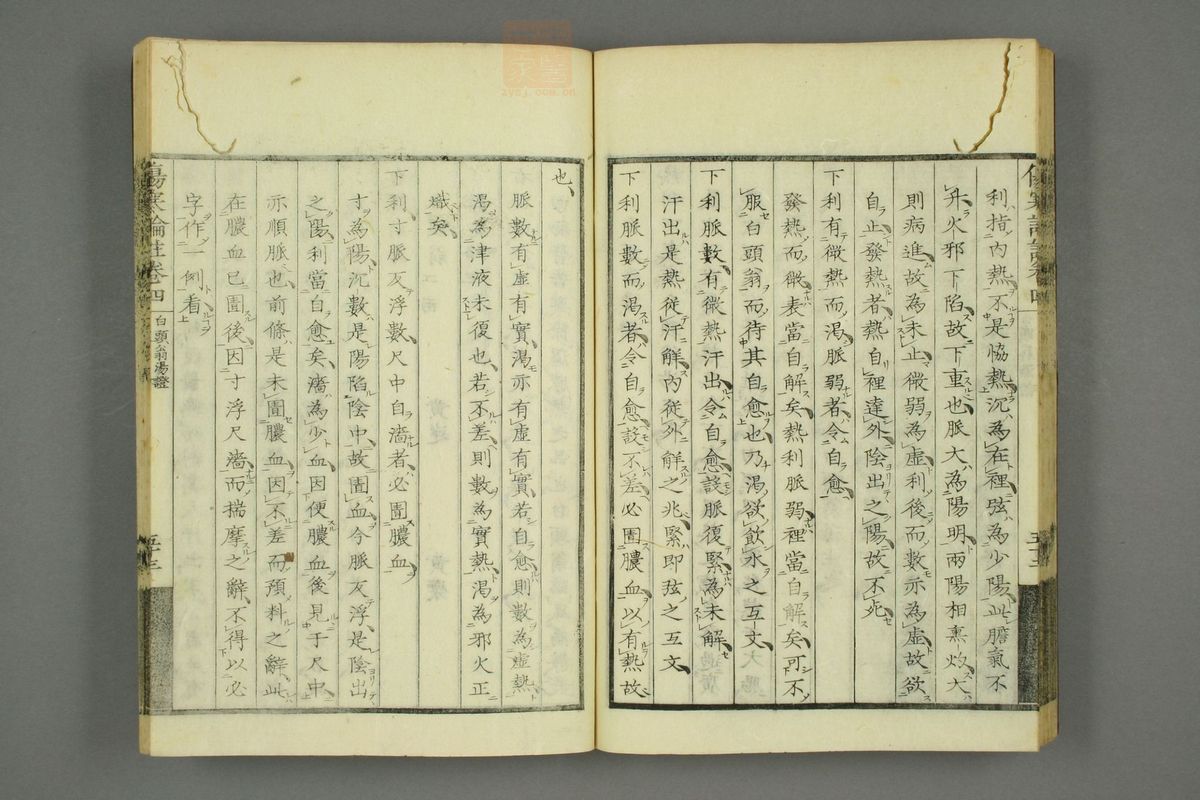 利指内熱不是恊熱沉為在裡弦為少陽此膽氣不
升火邪下陷故下重也脈大為陽明兩陽相熏灼大
則病進故為未止微弱為虛利後而數亦為虛故欲
自止發熱者熱自裡達外陰出之陽故不死
下利有微熱而渴脈弱者令自愈
發熱而微表當自解矣熱利脈弱裡當自解矣可不
服白頭翁而待其自愈也乃渴欲飲水之互文
下利脈數有微熱汗出令自愈設脈復緊為未解
汗出是熱從汗解内從外解之兆緊即弦之互文
下利脈數而渴者令自愈設不差必圊膿血以有熱故
也
脈數有虛有實渴亦有虛有實若自愈則數為虛熱
渴為津液未復也若不差則數為實熱渴為邪火正
熾矣
下利寸脈反浮數尺中自濇者必圊膿血
寸為陽沉數是陽陷陰中故圊血今脈反浮是陰出
之陽利當自愈矣濇為少血因便膿血後見于尺中
亦順脈也前條是未圊膿血因不差而預料之辭此
在膿血已圊後因寸浮尺濇而揣摩之辭不得以必
字作一例看
傷寒論註卷四
白頭翁湯證
五十三
zysj.com.cn